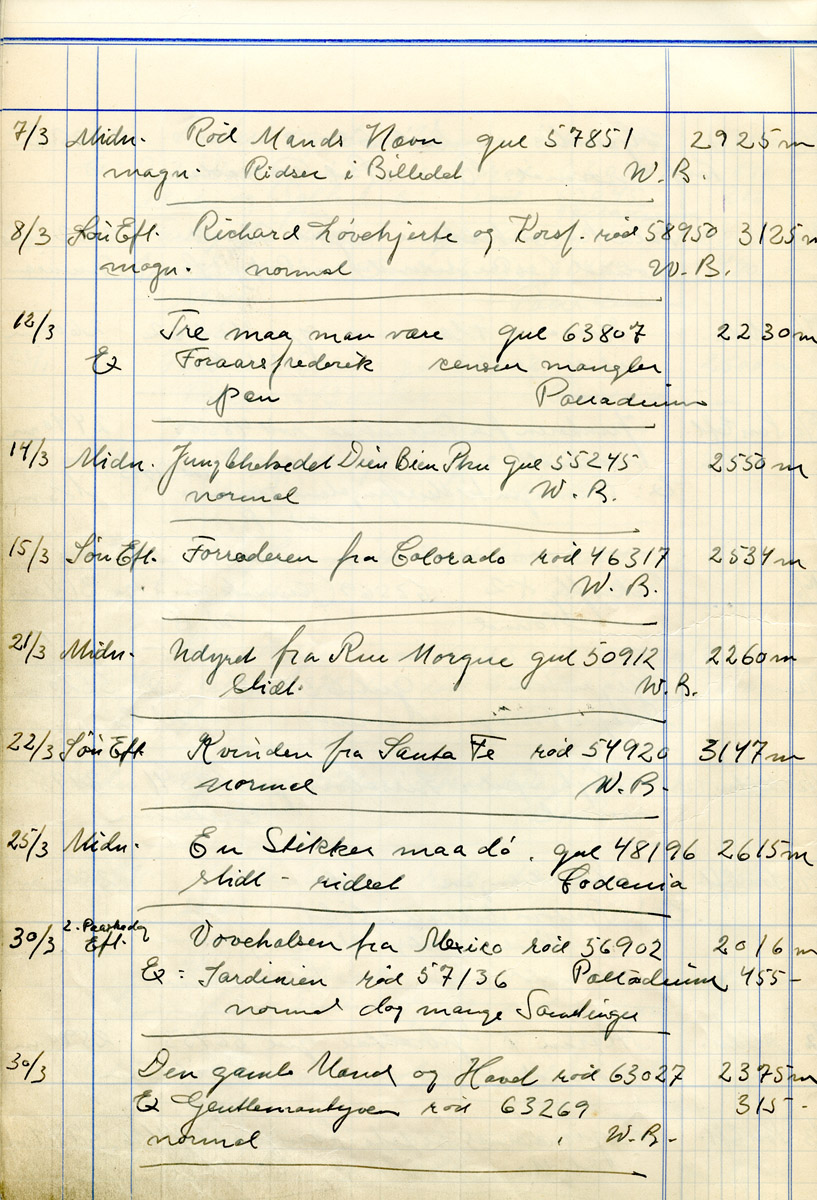 7/3 Midn. Rød Mands Havn gul 57851 2925 m
magn. Ridser i Billedet W.B.
8/3 Søn Eft. Richard Løvehjerte og Korsf. rød 58950 3125 m
magn. normal W.B.
12/3 Tre maa man være gul 63807 2230 m
Ex Foraarsfrederik censur mangler
pæn Palladium
14/3 Midn. Junglehelvedet Dien Bien Phu gul 55245 2550 m
normal W.B.
15/3 Søn Eft. Forræderen fra Colorado rød 46317 2534 m
W.B.
21/3 Midn. Udyret fra Rue Morgue gul 50912 2260 m
Slidt. W.B.
22/3 Søn Eft Kvinden fra Santa Fe rød 54920 3147 m
normal W.B.
25/3 Midn. En Stikker maa dø. gul 48196 2615 m
slidt - ridset Codania
30/3 2. Paaskedag Eft. Vovehalsen fra Mexico rød 56902 2016 m
Ex: Sardinien rød 57136 Palladium 455-
normal dog mange Samlinger
30/3 Den gamle Mand og Havet rød 63027 2375 m
Ex Gentlemantyven rød 63269 315-
normal W.B.